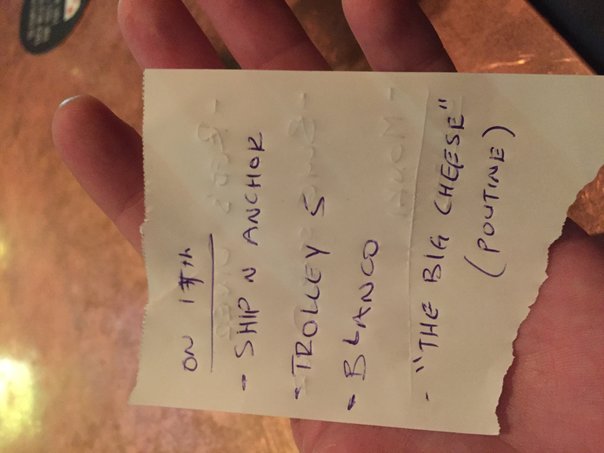 ON 17th
- SHIP N ANCHOR
- TROLLEY 5
- BLANCO
- "THE BIG CHEESE"
(POUTINE)